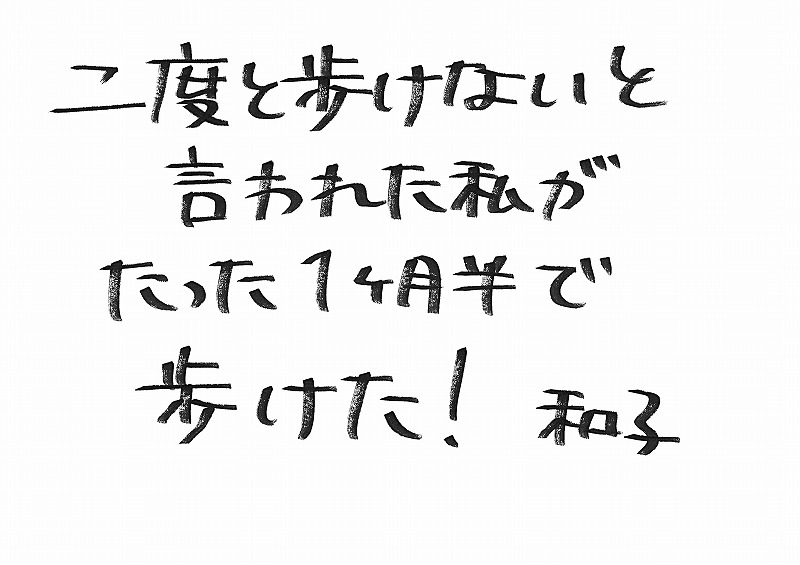 二度と歩けないと
言われた私が
たった1ヶ月半で
歩けた! 和子